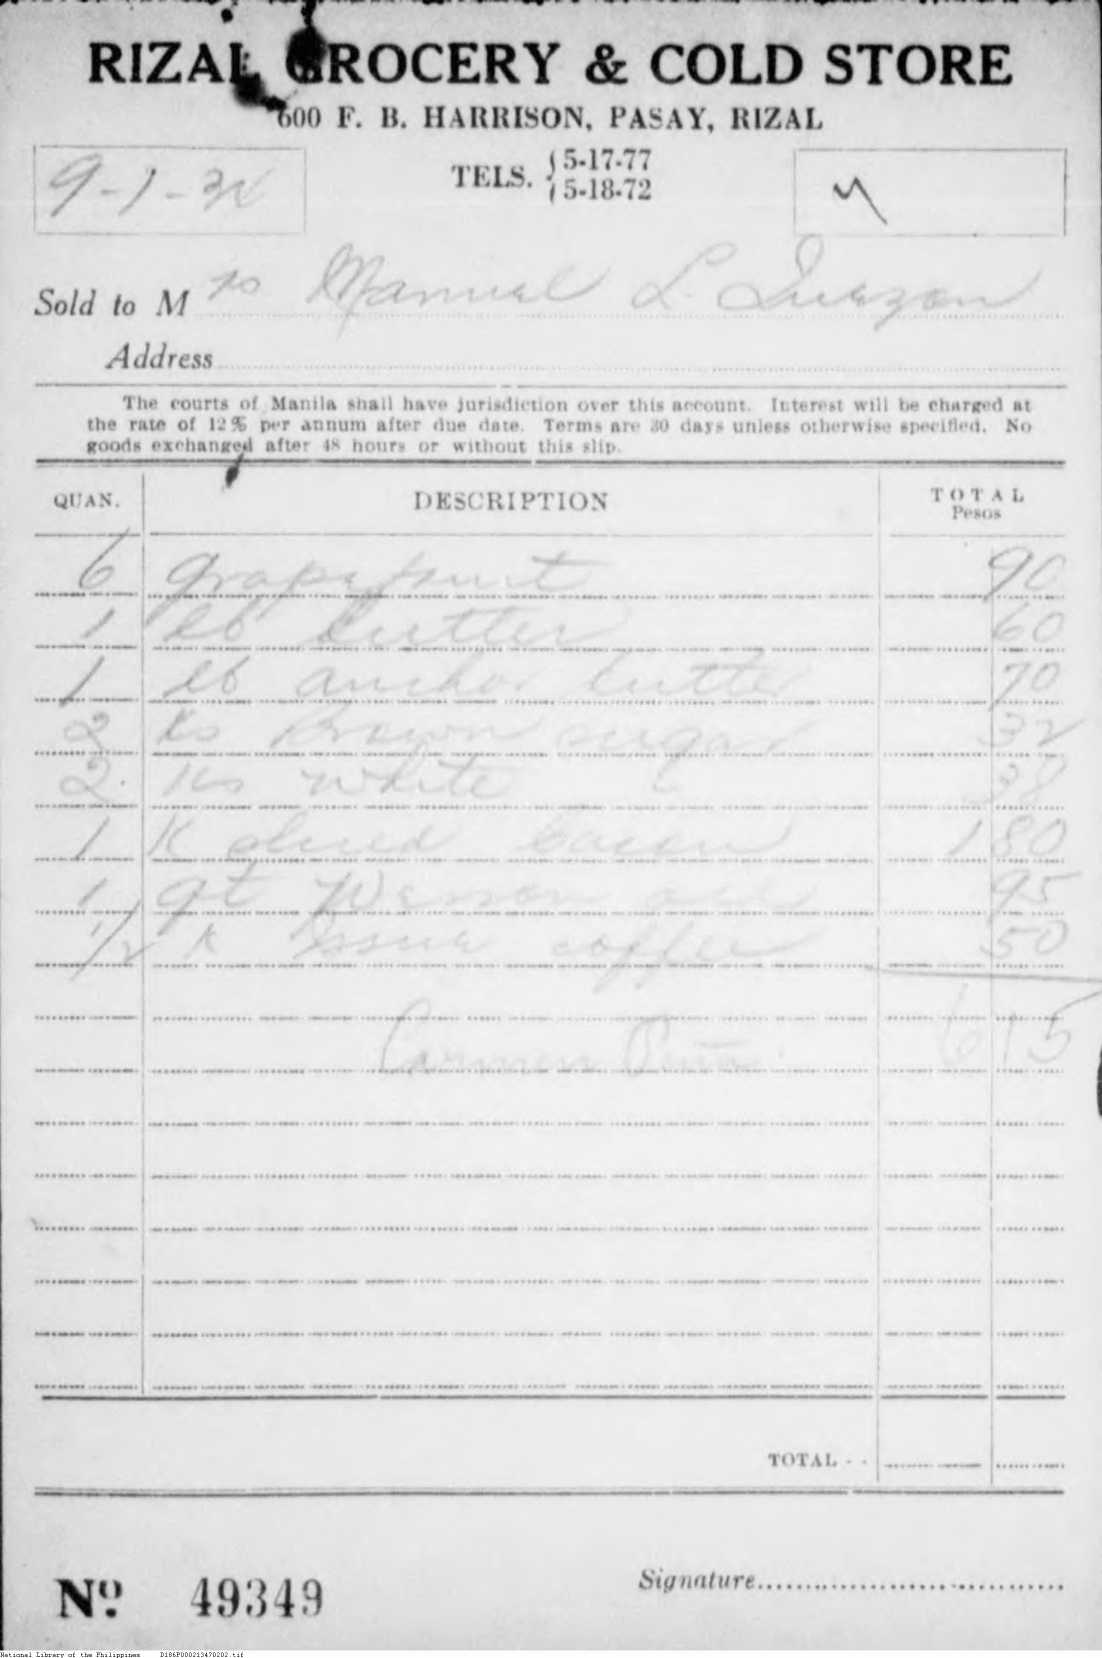 RIZAL GROCERY & COLD STORE
600 F. B. HARRISON, PASAY, RIZAL
TELS. 5-17-77
5-18-72
9-1-32
Sold to Mrs Manuel L. Quezon
Address
The courts of Manila shall have jurisdiction over this account. Interest will be charged at
the rate of 12% per annum after due date. Terms are 30 days unless otherwise specified. No
goods exchanged after 48 hours or without this slip.
QUAN. DESCRIPTION TOTAL
Pesos
6 grapefruit 90
1 lb butter 60
1 lb anchor butter 70
2 Ks Brown sugar 32
2 Ks white 38
1 K sliced bacon 1 80
1 qt Wesson oil 95
1/2 K coffee 50
Carmen 6 15
TOTAL - -
No. 49349 Signature
National Library of the Philippines D186P000213470202.tif